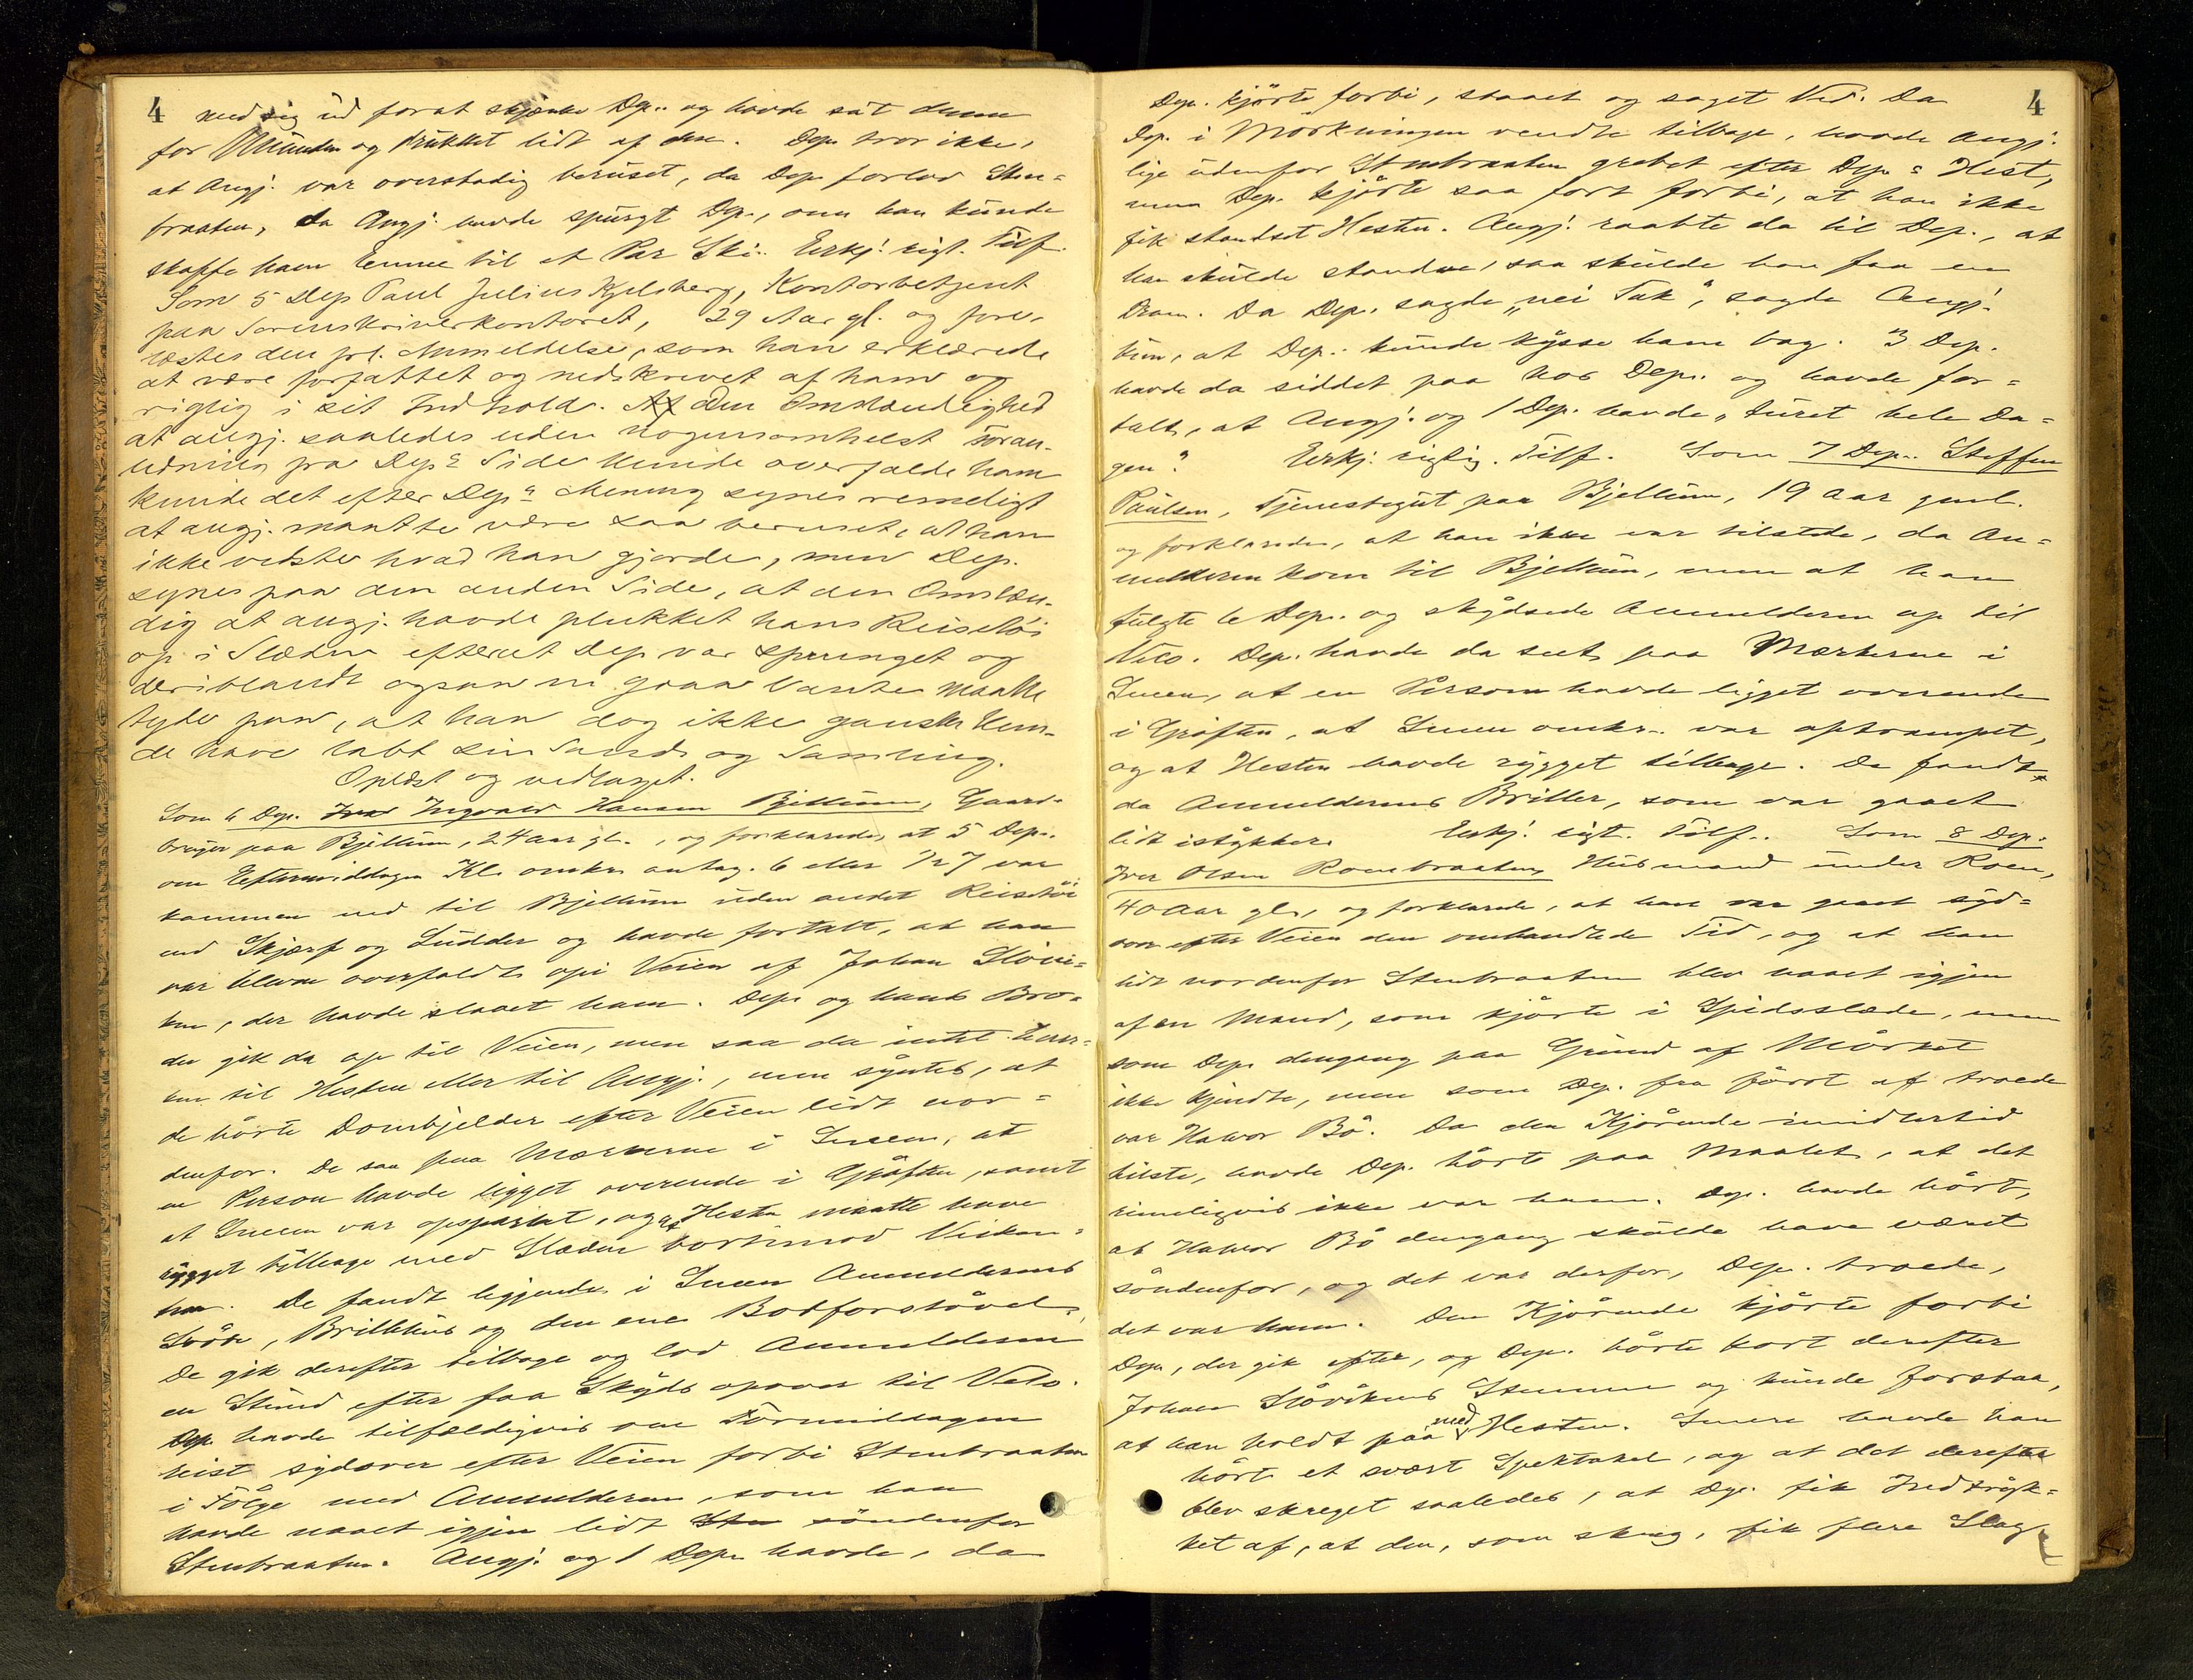 4
med sig ud forat skjænke Dep. og havde sat denne
for Munden og drukket lidt af den. Dep. tror ikke,
at Angj. var overstadig beruset, da Dep. forlod Sten-
braaten, da Angj. havde spurgt Dep., om han kunde
skaffe ham Emne til et Par Ski. Erkj. rigt. Tilf.
Som 5 Dep Paul Julius Kjelsberg, Kontorbetjent
paa Sorenskriverkontoret, 29 Aar gl. og fore-
læstes den prl. Anmeldelse, som han erklærede
at være forfattet og nedskrevet af ham og
rigtig i sit Indhold. Af den Omstændighed
at angj. saaledes uden nogensomhelst Foran-
ledning fra Dep's Side kunde overfalde ham
kunde det efter Dep's Mening synes rimeligt
at angj. maatte være saa beruset, at han
ikke vidste hvad han gjorde, men Dep.
synes paa den anden Side, at den Omstæn-
dig at angj. havde plukket hans Reisetøi
op i Slæden efteret Dep var sprunget og
deriblandt ogsaa en graa Vante maatte
tyde paa, at han dog ikke ganske kun-
de have tabt sin Sands og Samling.
Oplæst og vedtaget.
Som 6 Dep. Ingvald Hansen Bjellum, Gaard-
bruger paa Bjellum, 24 aar gl., og forklarede, at 5 Dep.
om Eftermiddagen Kl. omkr. antag. 6 eller ½ 7 var
kommen ned til Bjellum uden andet Reisetøi
end Skjærf og Ludder og havde fortalt, at han
var bleven overfaldt opi Veien af Johan Slövi-
ken, der havde slaaet ham. Dep. og hans Bro-
der gik da op til Veien, men saa da intet hver-
ken til Hesten eller til Angj., men syntes, at
de hörte Dombjelder efter Veien lidt nor-
denfor. De saa paa Mærkerne i Sneen, at
en Person havde ligget overende i Gröften, samt
at Sneen var opsparket, og at Hesten maatte have
rygget tilbage med Slæden bortimod Veikan-
ten. De fandt liggende i Sneen Anmelderens
Svöbe, Brillehus og den ene Botforstövel.
De gik derefter tilbage og lod Anmelderen
en Stund efter faa Skyds opover til Velo.
Dep. havde tilfældigvis om Formiddagen
reist sydover efter Veien forbi Stenbraaten
i Fölge med Anmelderen, som han
havde naaet igjen lidt söndenfor
Stenbraaten. Angj. og 1 Dep. havde, da
4
Dep. kjörte forbi, staaet og saget Ved. Da
Dep. i Mörkningen vendte tilbage, havde Angj.
lige udenfor Stenbraaten grebet efter Dep.s Hest,
men Dep. kjörte saa fort forbi, at han ikke
fik standset Hesten. Angj. raabte da til Dep., at
han skulde standse, saa skulde han faa en
Dram. Da Dep. sagde „nei Tak“, sagde Angj.
kun, at Dep. kunde kysse ham bag. 3 Dep.
havde da siddet paa hos Dep. og havde for-
talt, at Angj. og 1 Dep. havde „turet hele Da-
gen“. Erkj. rigtig. Tilf. Som 7 Dep. Steffen
Paulsen, Tjenestegut paa Bjellum, 19 aar gml.
og forklarede, at han ikke var tilstede, da An-
melderen kom til Bjellum, men at han
fulgte 6 Dep. og skydsede Anmelderen op til
Velo. Dep. havde da seet paa Mærkerne i
Sneen, at en Person havde ligget overende
i Gröften, at Sneen omkr. var optrampet,
og at Hesten havde rygget tilbage. De fandt
da Anmelderens Briller, som var gaaet
lidt istykker. Erkj. rigt. Tilf. Som 8 Dep.
Iver Olsen Roenbraaten, Husmand under Roen,
40 Aar gl., og forklarede, at han var gaaet syd-
over efter Veien den omhandlede Tid, og at han
lidt nordenfor Stenbraaten blev naaet igjen
af en Mand, som kjörte i Spidsslæde, men
som Dep. dengang paa Grund af Mörket
ikke kjendte, men som Dep. fra först af troede
var Halvor Bö. Da den Kjörende imidlertid
hilste, havde Dep. hört paa Maalet, at det
rimeligvis ikke var ham. Dep. havde hört,
at Halvor Bö dengang skulde have været
söndenfor, og det var derfor, Dep. troede,
det var ham. Den Kjörende kjörte forbi
Dep., der gik efter, og Dep. hörte kort derefter
Johan Slövikens Stemme og kunde forstaa,
at han holdt paa med Hesten. Senere havde han
hört et svært Spektakel, og at det derefter
blev skreget saaledes, at Dep. fik Indtryk-
ket af, at den, som skreg, fik flere Slag